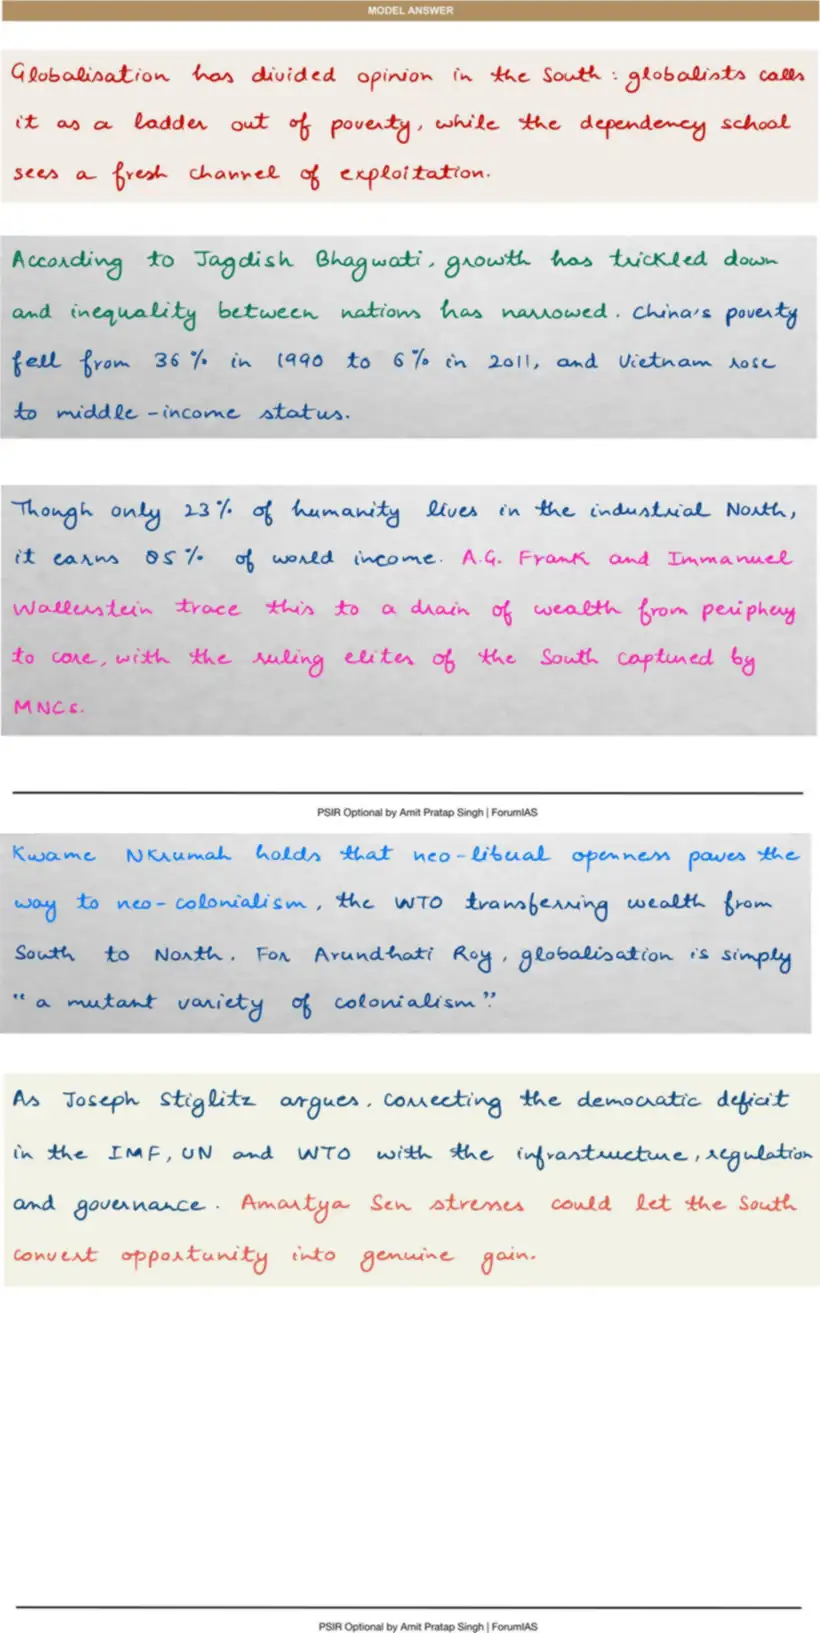 MODEL ANSWER
Globalisation has divided opinion in the South : globalists calls
it as a ladder out of poverty, while the dependency school
sees a fresh channel of exploitation.
According to Jagdish Bhagwati, growth has trickled down
and inequality between nations has narrowed. China's poverty
fell from 36% in 1990 to 6% in 2011, and Vietnam rose
to middle-income status.
Though only 23% of humanity lives in the industrial North,
it earns 85% of world income. A.G. Frank and Immanuel
Wallerstein trace this to a drain of wealth from periphery
to core, with the ruling elites of the South captured by
MNCs.
PSIR Optional by Amit Pratap Singh | ForumIAS
Kwame Nkrumah holds that neo-liberal openness paves the
way to neo-colonialism, the WTO transferring wealth from
South to North. For Arundhati Roy, globalisation is simply
"a mutant variety of colonialism".
As Joseph Stiglitz argues, correcting the democratic deficit
in the IMF, UN and WTO with the infrastructure, regulation
and governance. Amartya Sen stresses could let the South
convert opportunity into genuine gain.
PSIR Optional by Amit Pratap Singh | ForumIAS